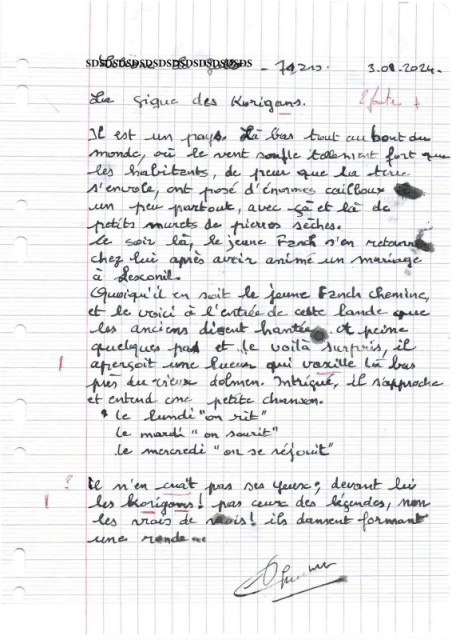 SDSDSDSDSDSDSDSDSDSDS - 7420. 3.01.2024.
La Gigue des Korigans. 2 fautes +
Il est un pays. Là bas tout au bout du
monde, où le vent soufle tellement fort que
les habitents, de peur que la terre
s'envole, ont posé d'énormes cailloux
un peu partout, avec çà et là de
petits murets de pierres sèches.
Ce soir là, le jeune Fanch s'en retourne
chez lui après avoir animé un mariage
à Lesconil.
Quoiqu'il en soit le jeune Fanch chemine,
et le voici à l'entrée de cette lande que
les anciens disent hantée. A peine
quelques pas et le voilà surpris, il
| aperçoit une lueur qui vaxille là bas
près du vieux dolmen. Intrigué, il s'approche
et entend une petite chanson.
le lundi "on rit"
le mardi "on sourit"
le mercredi "on se réjouit"
? Il n'en cuait pas ses yeux, devant lui
| les Korigans! pas ceux des légendes, non
les vrais de vrais! ils dansent formant
une ronde...